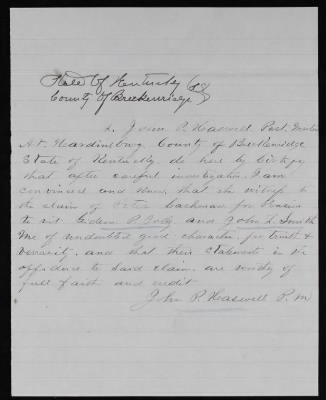 State Of Kentucky
County Of Breckenridge
I, John P. Haswell Post Master
At Hardinsburg County of Breckenridge
State of Kentucky do here by Certify
that after careful investigation I am
convinced and know, that the witness to
the claim of for Pension
to wit Gideon P. Jolly and John L. Smith
are of undoubted good character for truth &
veracity, and that their statements in the
affidavit to said claim, are worthy of
full faith and credit
John P. Haswell P. M